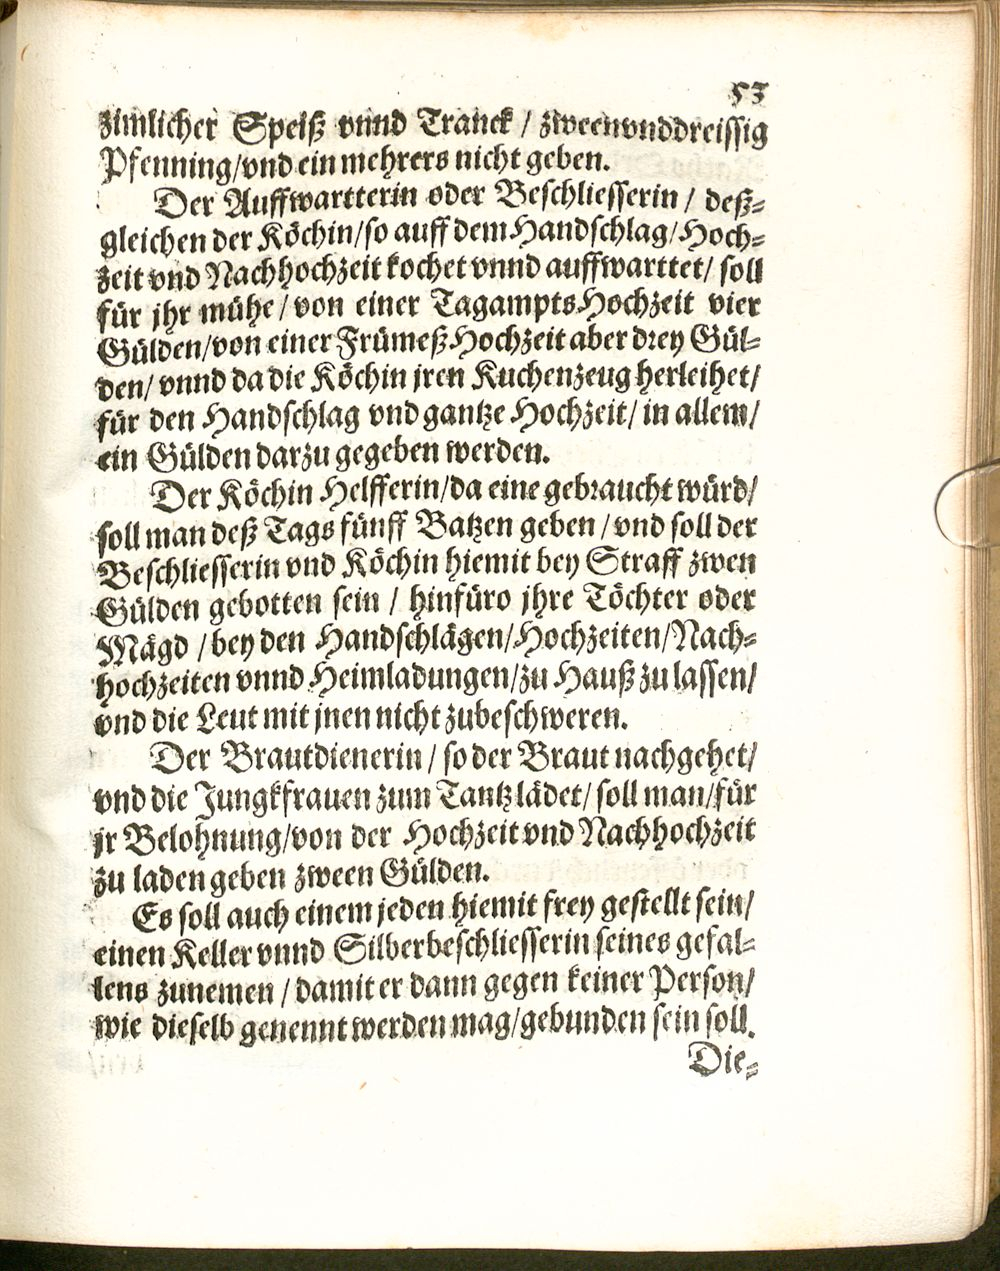 53
zimlicher Speiß vnnd Tranck / zweenvnddreissig
Pfenning/vnd ein mehrers nicht geben.
Der Auffwartterin oder Beschliesserin / deß-
gleichen der Köchin/so auff dem Handschlag/Hoch-
zeit vnd Nachhochzeit kochet vnnd auffwarttet/ soll
für jhr mühe / von einer TagamptsHochzeit vier
Gülden/von einer FrümeßHochzeit aber drey Gül-
den/ vnnd da die Köchin jren Kuchenzeug herleihet/
für den Handschlag vnd gantze Hochzeit/ in allem/
ein Gülden darzu gegeben werden.
Der Köchin Helfferin/da eine gebraucht würd/
soll man deß Tags fünff Batzen geben / vnd soll der
Beschliesserin vnd Köchin hiemit bey Straff zwen
Gülden gebotten sein / hinfüro jhre Töchter oder
Mägd / bey den Handschlägen/Hochzeiten/Nach-
hochzeiten vnnd Heimladungen/zu Hauß zu lassen/
vnd die Leut mit jnen nicht zubeschweren.
Der Brautdienerin / so der Braut nachgehet/
vnd die Jungkfrauen zum Tantz lädet/ soll man/für
jr Belohnung/von der Hochzeit vnd Nachhochzeit
zu laden geben zween Gülden.
Es soll auch einem jeden hiemit frey gestellt sein/
einen Keller vnnd Silberbeschliesserin seines gefal-
lens zunemen / damit er dann gegen keiner Person/
wie dieselb genennt werden mag/gebunden sein soll.
Die-